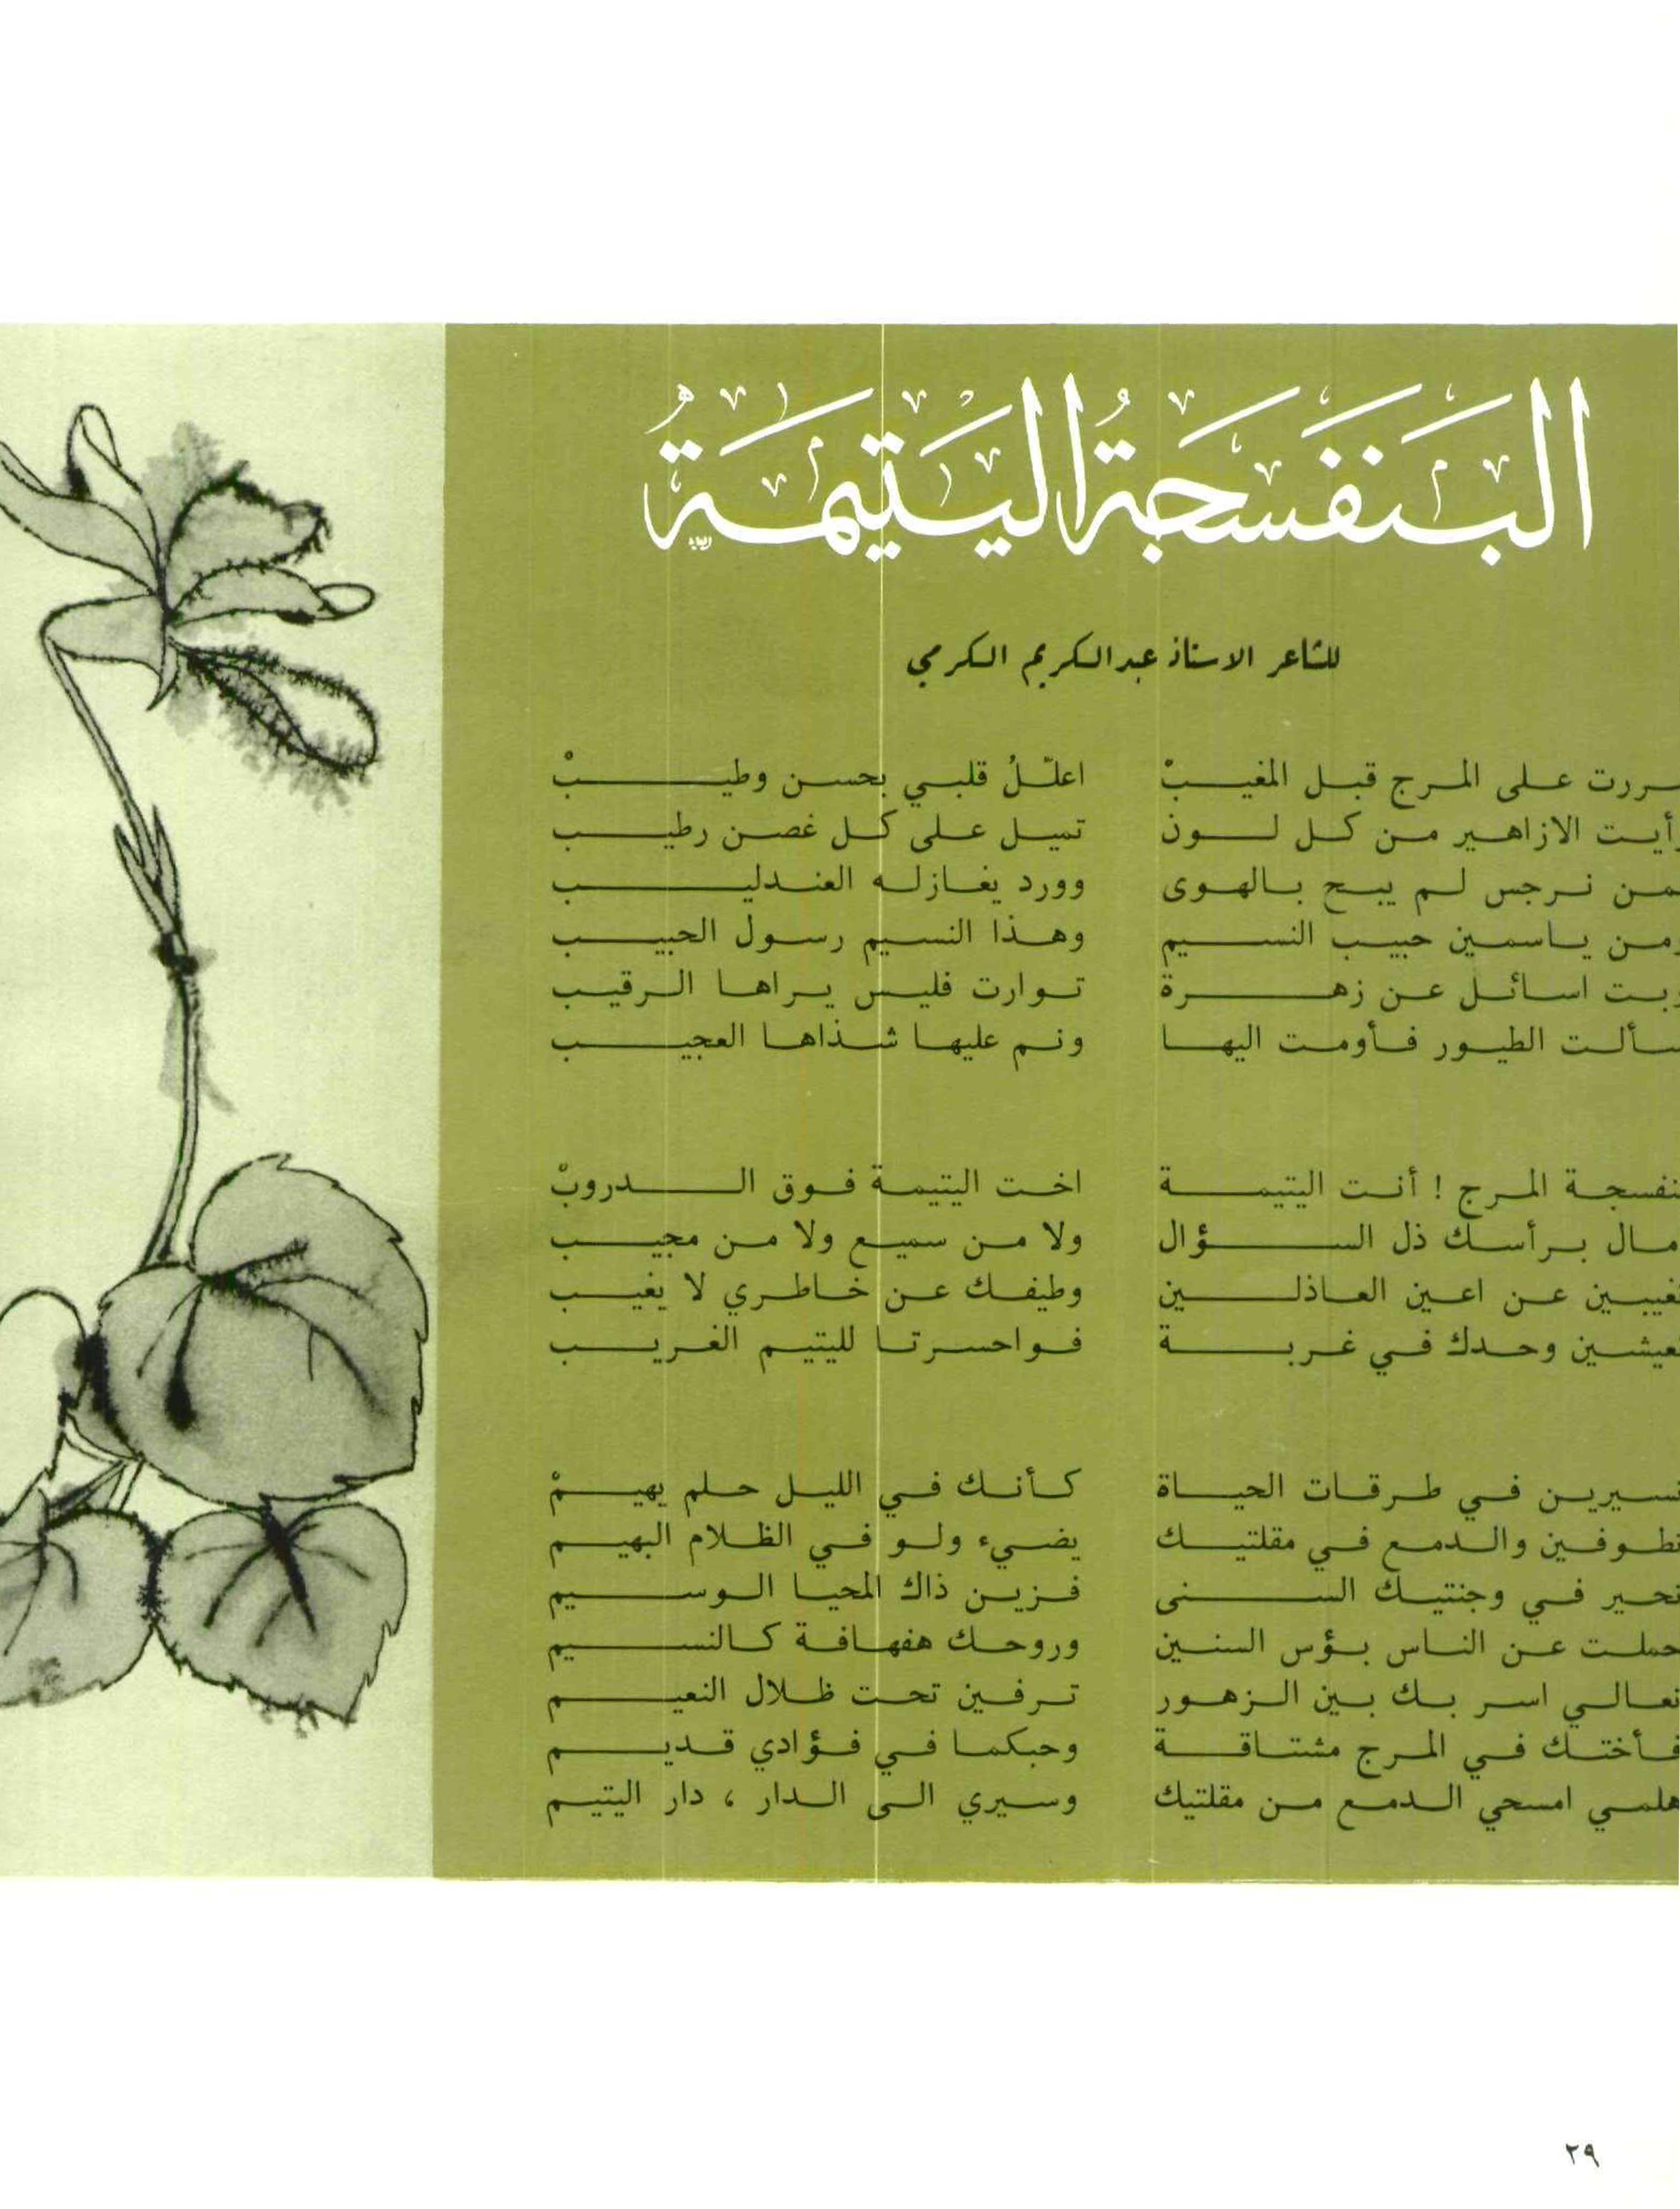 البَنَفسَجَةُ اليَتيمَةُ
للشاعر الاستاذ عبد الكريم الكرمي
ررت على المرج قبل المغيبْ اعلّلُ قلبي بحسن وطيبْ
رأيت الازاهير من كل لون تميل على كل غصن رطيب
من نرجس لم يبح بالهوى وورد يغازله العندليب
ومن ياسمين حبيب النسيم وهذا النسيم رسول الحبيب
وبت اسائل عن زهرة توارت فليس يراها الرقيب
سألت الطيور فأومت اليها ونم عليها شذاها العجيب
نفسجة المرج ! أنت اليتيمة اخت اليتيمة فوق الدروبْ
مال برأسك ذل السؤال ولا من سميع ولا من مجيب
تغيبين عن اعين العاذلين وطيفك عن خاطري لا يغيب
تعيشين وحدك في غربة فواحسرتا لليتيم الغريب
تسيرين في طرقات الحياة كأنك في الليل حلم يهيمْ
تطوفين والدمع في مقلتيك يضيء ولو في الظلام البهيم
تحير في وجنتيك السنى فزين ذاك المحيا الوسيم
حملت عن الناس بؤس السنين وروحك هفهافة كالنسيم
تعالي اسر بك بين الزهور ترفين تحت ظلال النعيم
فأختك في المرج مشتاقة وحبكما في فؤادي قديم
هلمي امسحي الدمع من مقلتيك وسيري الى الدار ، دار اليتيم
٢٩